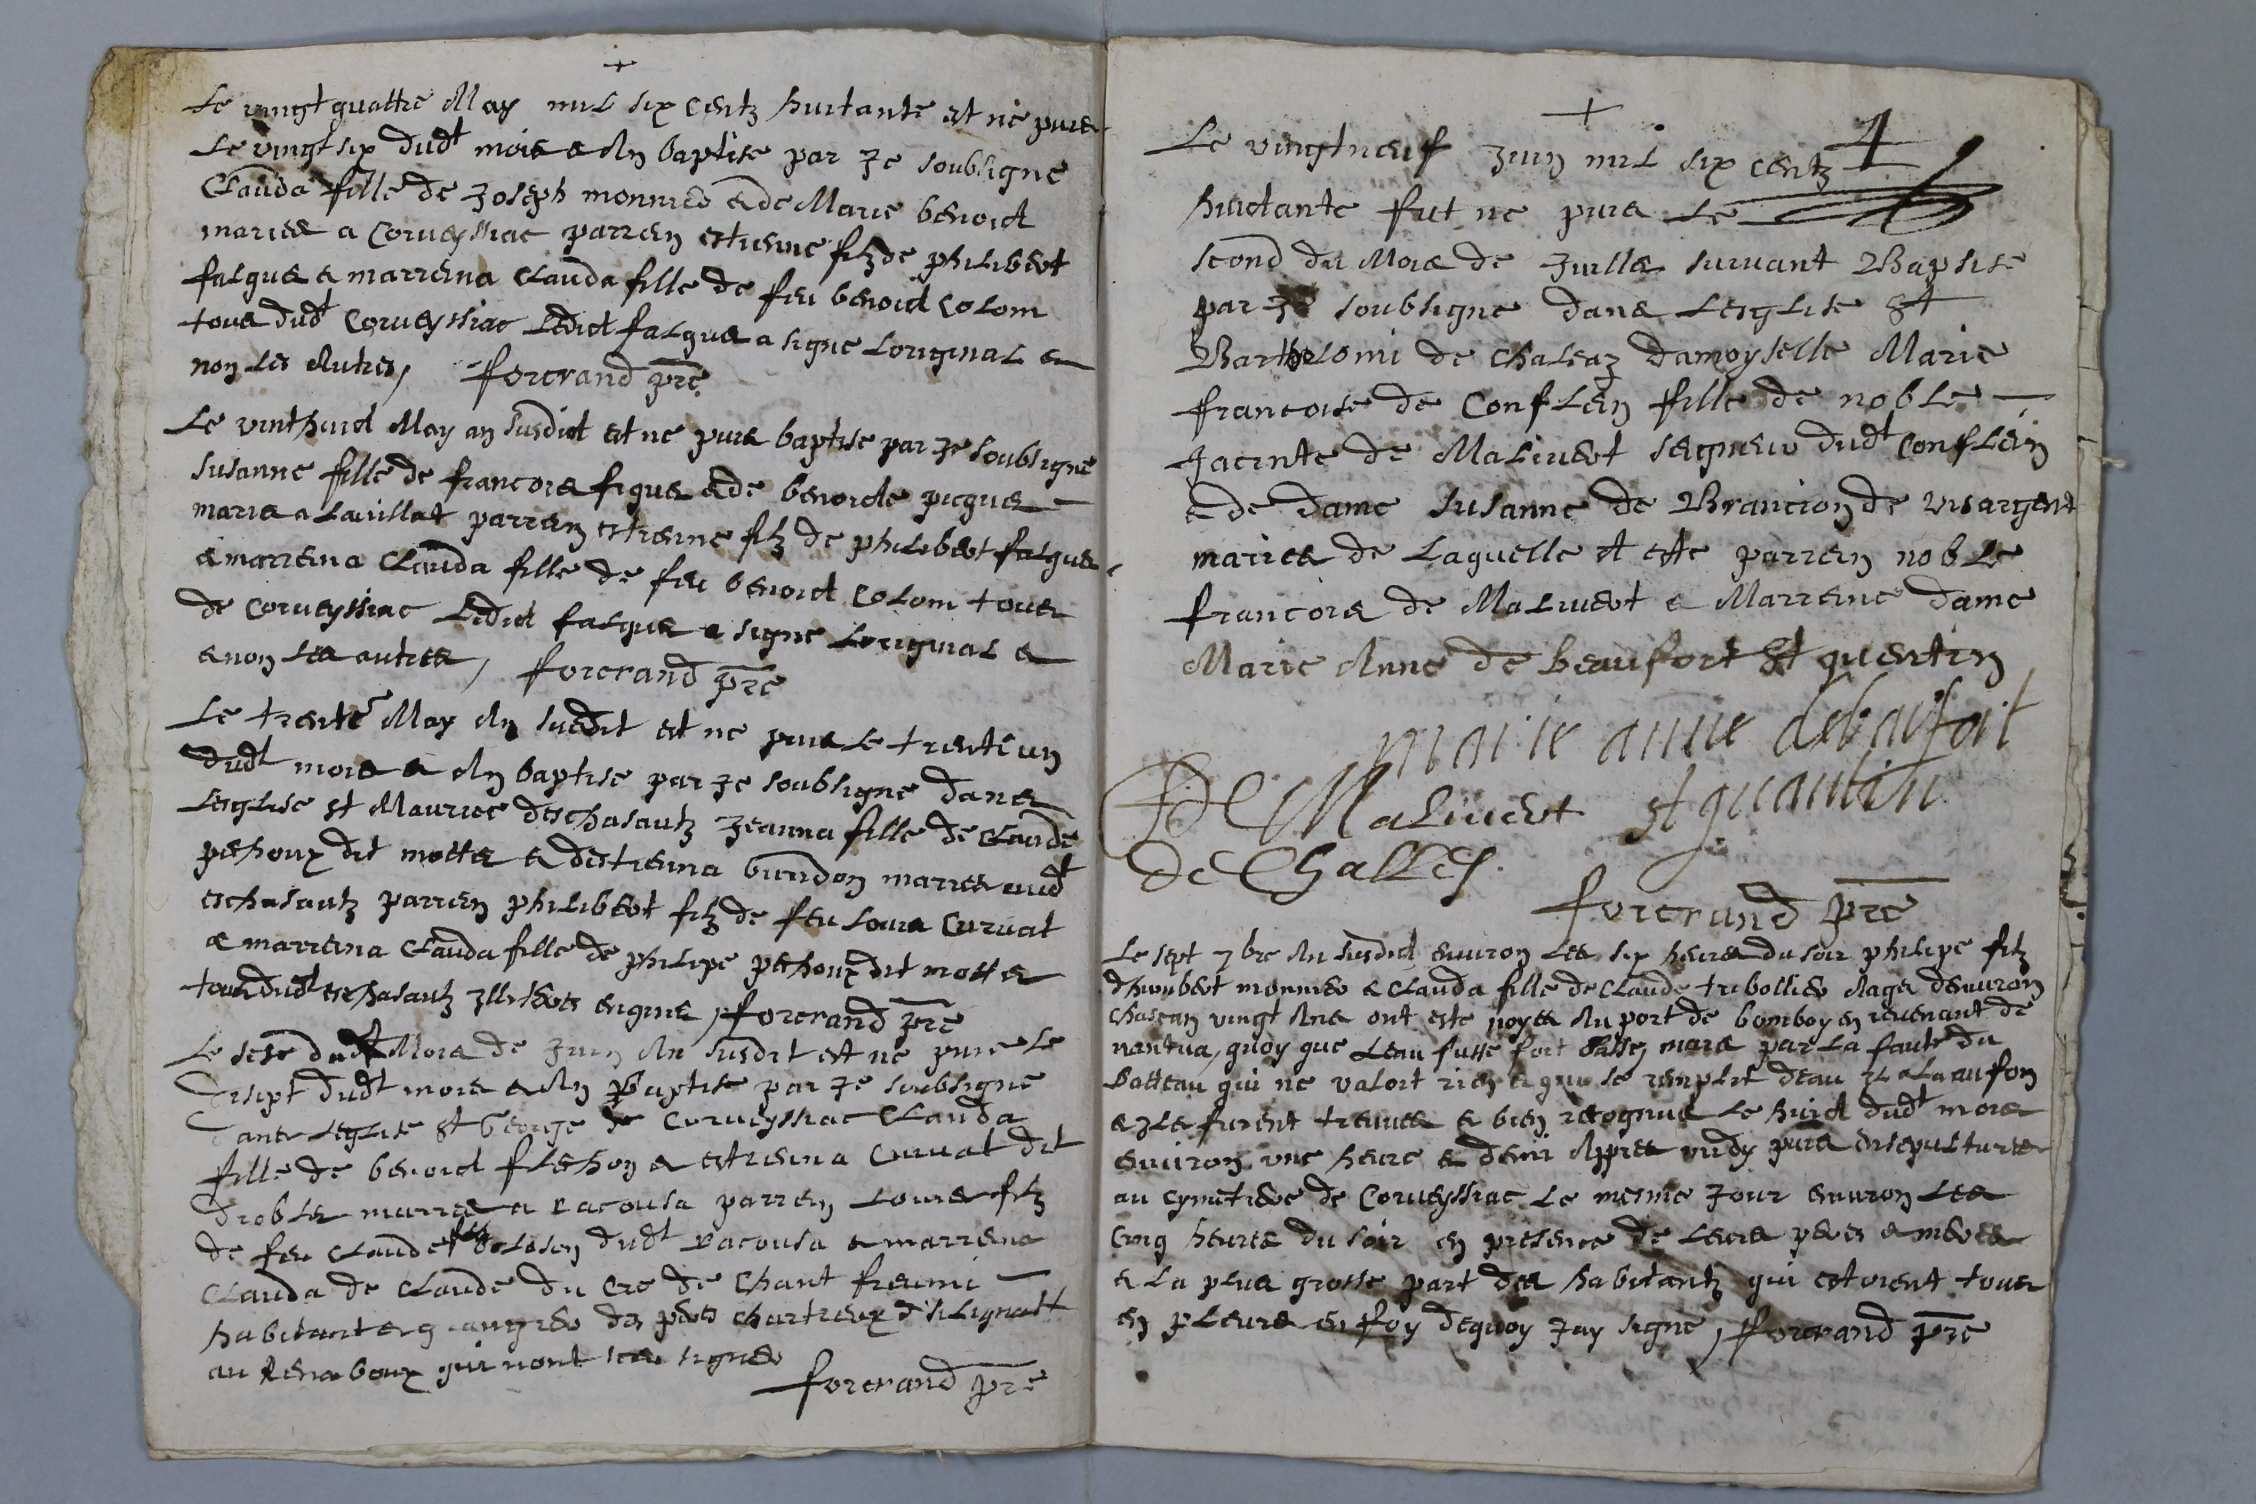 Le vingt quattre May mil six centz huitante est né puis
Le vingt six dudt mois & An baptisé par Je soubsigne
Clauda fille de Joseph monnier & de Marie benoid
maries a Corveyssiac parrein estienne filz de philibert
falque & marreina Clauda fille de feu benoid Colom
tous dudt Corveyssiac Ledict falque a signe Loriginal &
non les Autres, forcrand pre
Le vinthuid May an susdict est ne puis baptise par Je soubsigne
susanne fille de francois fique & de benoide picque
maries a Lavillat parrein estienne filz de philibert falque
& marreina Clauda fille de feu benoid Colom tous
de Corveyssiac Ledict falque a signe Loriginal &
& non les autres, forcrand pre
Le trente May An susdit est ne puis Le trente un
dudt mois & An baptise par Je soubsigne dans
Lesglise st Maurice deschasautz Jeanna fille de Claude
pethoux dit mottet & destienna bundon maries audt
eschasautz parrien philibert filz de feu Louis Curvat
& marreina Clauda fille de philipe pethoux dit mottet
tous dudt eschasautz Illitteres enquis, forcrand pre
Le sese du Mois de Juin An susdit est ne puis Le
disept dudt mois & An Baptise par Je soubsigne
dans Leglise st George de Corveyssiac Clauda
fille de benoid flethon & estienna Curvat dit
droblet marries a Racousa parrein Louis filz
de feu Claude dudt Racousa & marreina
Clauda de Claude du Cre de Chant freumi
habitant en grangier des peres Chartreux d'silignatt
au qui nont sceu signer
forcrand pre
4
Le vingt neuf Juin mil six centz
huictante fut ne puis Le
scond du Mois de Juillet suivant Baptise
par Je soubsigne dans Lesglise St
Bartholomi de Chaleaz damoyselle Marie
francoise de Conflein fille de noble
Jacinte de Malivert seigneur dudt Conflein
& de dame Susanne de Brancion de visargent
maries de Laquelle A este parrein noble
francois de Malivert & Marreine dame
Marie Anne de beaufort St quentin
marie anne debaufort
De Malivert st quantin
de Challes.
forcrand pre
Le sept 7bre An susdict environ les six heures du soir philipe filz
dhumbert monnier & Clauda fille de Claude tribollier Ages denviron
chascun vingt Ans ont este noyes Au port de bomboy en revenant de
nantua, quoy que Leau fusse fort basse, mais par La faute du
Batteau qui ne valoit rien & qui se remplit deau & ala au fon
& Ils furent treuves & bien recognus Le huict dudt mois
environ une heure & demi Appres midy puis ensepultures
au cymetiere de Corveyssiac Le mesme Jour environ les
cinq heures du soir en presence de Leurs peres & meres
& La plus grosse part des habitantz qui estoient tous
en pleurs en foy dequoy Jay signe, forcrand pre